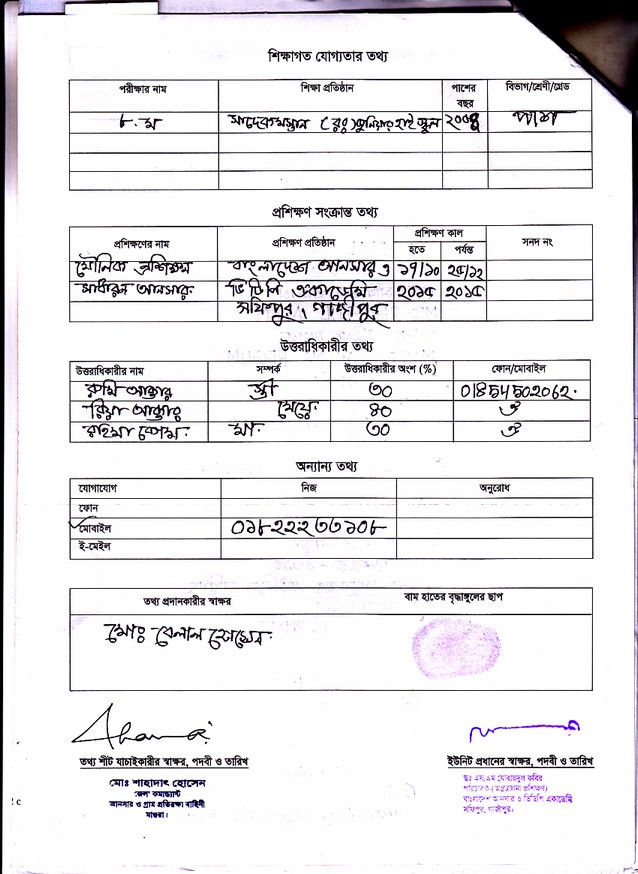 শিক্ষাগত যোগ্যতার তথ্য
পরীক্ষার নাম শিক্ষা প্রতিষ্ঠান পাশের বছর বিভাগ/শ্রেণী/গ্রেড
৮.ম (রেঃ) জুনিয়র হাই স্কুল পাশ
প্রশিক্ষণ সংক্রান্ত তথ্য
প্রশিক্ষণের নাম প্রশিক্ষণ প্রতিষ্ঠান প্রশিক্ষণ কাল সনদ নং
হতে পর্যন্ত
মৌলিক প্রশিক্ষন বাংলাদেশ আনসার ও ১৭/১০ ২৫/১২
সাধারন আনসার ভিডিপি একাডেমি ২০১৫ ২০১৫
সফিপুর, গাজীপুর
উত্তরাধিকারীর তথ্য
উত্তরাধিকারীর নাম সম্পর্ক উত্তরাধিকারীর অংশ (%) ফোন/মোবাইল
রুমি আক্তার স্ত্রী ৩০
রিয়া আক্তার মেয়ে ৪০ ঐ
রহিমা বেগম মা ৩০ ঐ
অন্যান্য তথ্য
যোগাযোগ নিজ অনুরোধ
ফোন
মোবাইল ০১৮২২২৩৩১০৮
ই-মেইল
তথ্য প্রদানকারীর স্বাক্ষর বাম হাতের বৃদ্ধাঙ্গুলের ছাপ
মোঃ বেলাল হোসেন
তথ্য শীট যাচাইকারীর স্বাক্ষর, পদবী ও তারিখ ইউনিট প্রধানের স্বাক্ষর, পদবী ও তারিখ
মোঃ শাহাদাৎ হোসেন
জেলা কমান্ড্যান্ট
আনসার ও গ্রাম প্রতিরক্ষা বাহিনী
মাগুরা।
ডঃ এস.এম যোবায়দুল কবির
বাংলাদেশ আনসার ও ভিডিপি একাডেমি
সফিপুর, গাজীপুর।